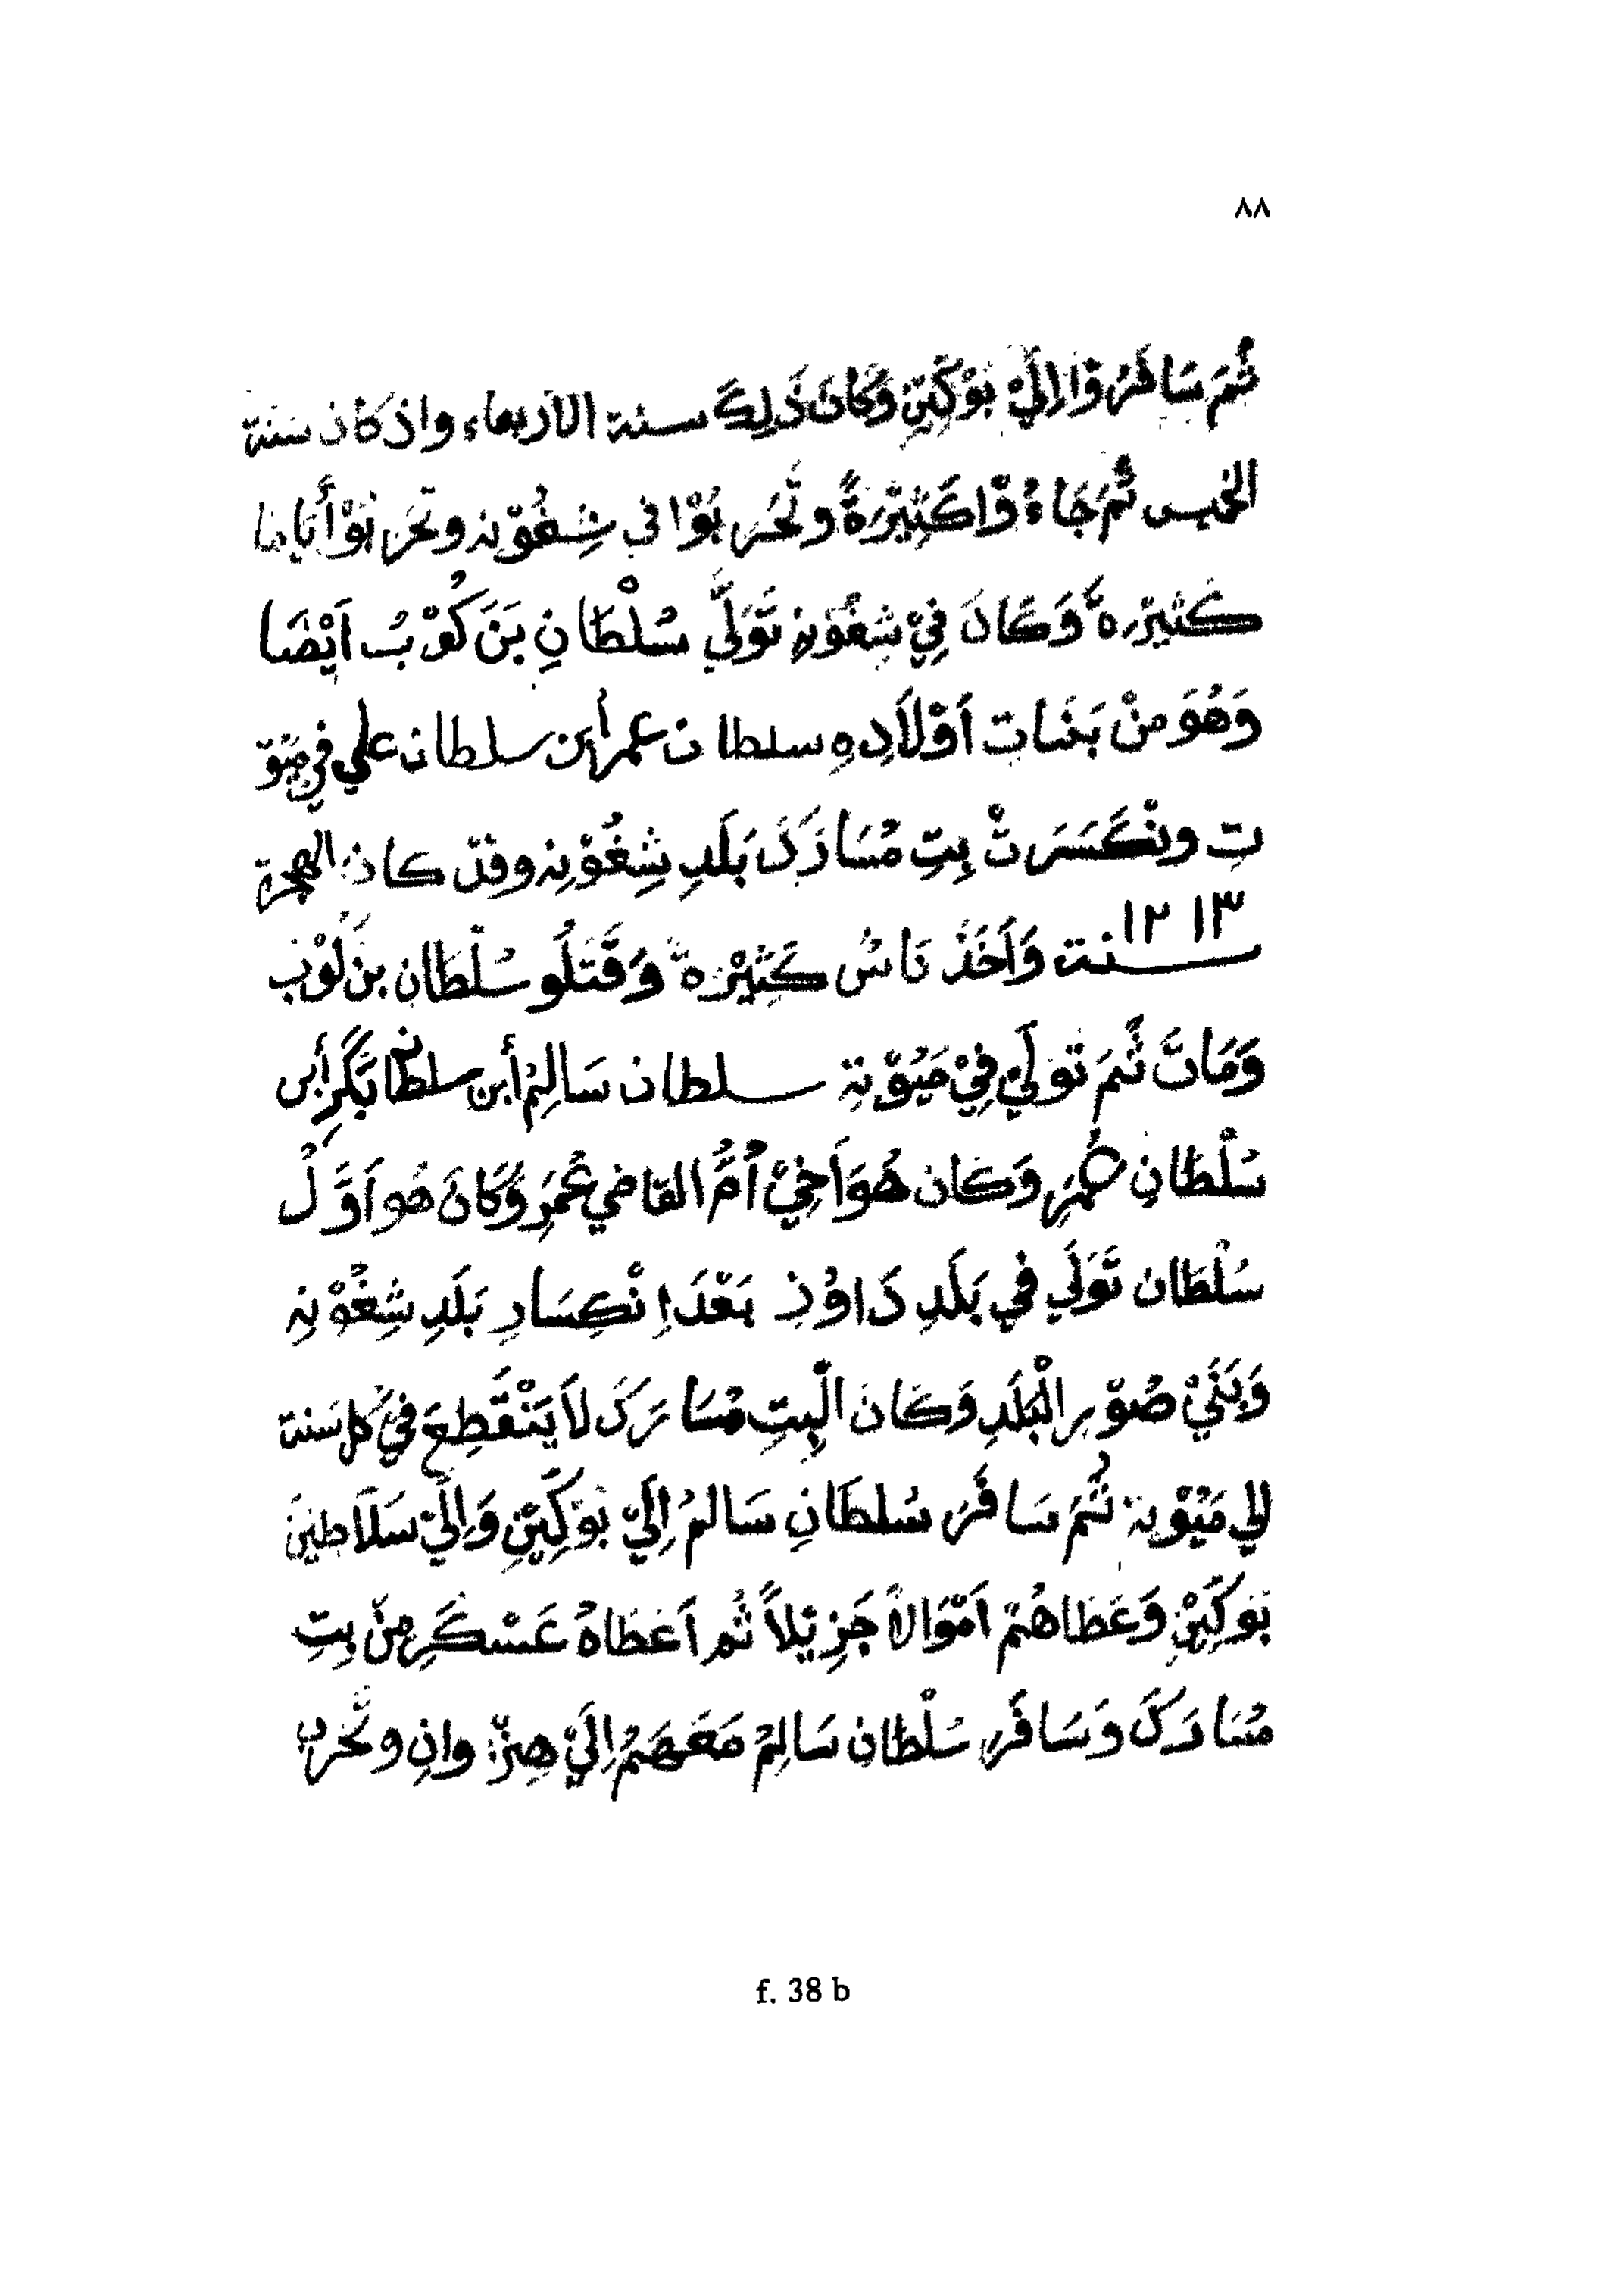 ٨٨
ثُمَ سَافَرُوْا اِلَيْ بَوْكِيْنِ وَكَانَ ذَلِكَ سنة الاربعاء واذ كان سَنة
الخميس ثُمَ جَاءُوْا كَثِيْرَةً وتَحَرَبُوْا في شِغُوْنِهِ وتَحَرَبَوْا أَيَامَا
كَثِيْرَةً وَكَانَ فِيْ شِغُوْنِهِ تَوَلَّي سُلْطَانِ بَنَ كُوْبُ اَيْضَا
وَهُوَ مِنْ بَنَات اَوْلَادِهِ سلطان عمر أبن سلطان علي في مِيْوْ
تِ ونْكَسَرَتْ بِتِ مُسَازَكَ بَلَدِ شِغُوْنِهِ وقدْ كان الهجرة
١٢١٣
سنة وَاَخَذَ نَاسُ كَثِيْرَةً وَقَتَلُو سُلْطَانِ بن كُوْبِ
وَمَاتَ ثُمَ تَوَلَيْ فِيْ مَيُوْتِهِ سلطان سَالِمْ أبن سلطان بَكَرِ أبن
سُلْطَانِ عُمَرِ وَكَان هُوَ اَخِيْ اُمُّ القاضي عُمَرِ وَكَانَ هُو اَوَّلْ
سُلْطَان تَوَلَي في بَلَدِ دَاوُنِ بَعْدَ اِنْكِسَارِ بَلَدِ شِغُوْنِهِ
وَبَنَيْ صُوْرِ الْبَلَدِ وَكَانَ الْبِتِ مُسَارَكَ لَا يَنْقَطِعَ فِيْ كل سَنة
الي مَيُوْتة ثُمَ سَافَرَ سُلطَانِ سَالمُ اِلَيْ بَوْكِيْنِ وَاِلَيْ سَلَاطِيْنَ
بَوكِيْنِ وَعَطَاهُمْ اَمْوَالاً جَزِيْلاً ثُم اَعَطَاهُ عَسْكَرِ مِنْ بِتِ
مُسَارَكَ وَسَافَرَ سُلْطَان سَالِمْ مَعَهَمُ اِلَيْ هِنْزُوانِ وتَحَرب
f. 38 b